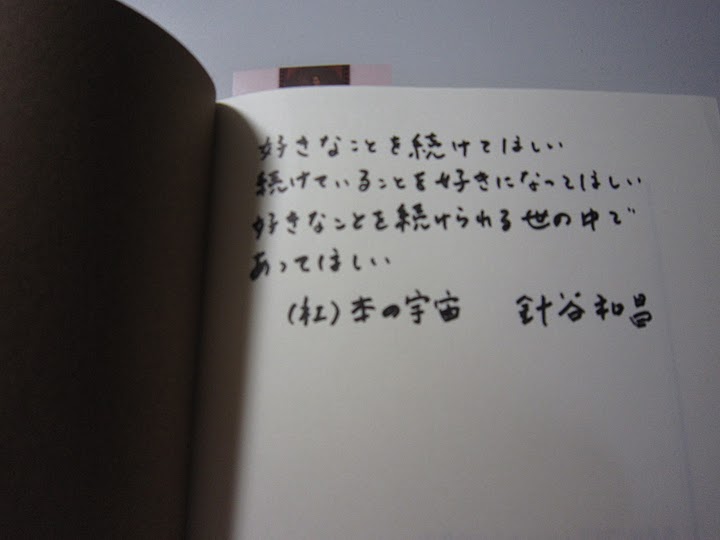 好きなことを続けてほしい
続けていることを好きになってほしい
好きなことを続けられる世の中で
あってほしい
(社)本の宇宙 針谷和昌